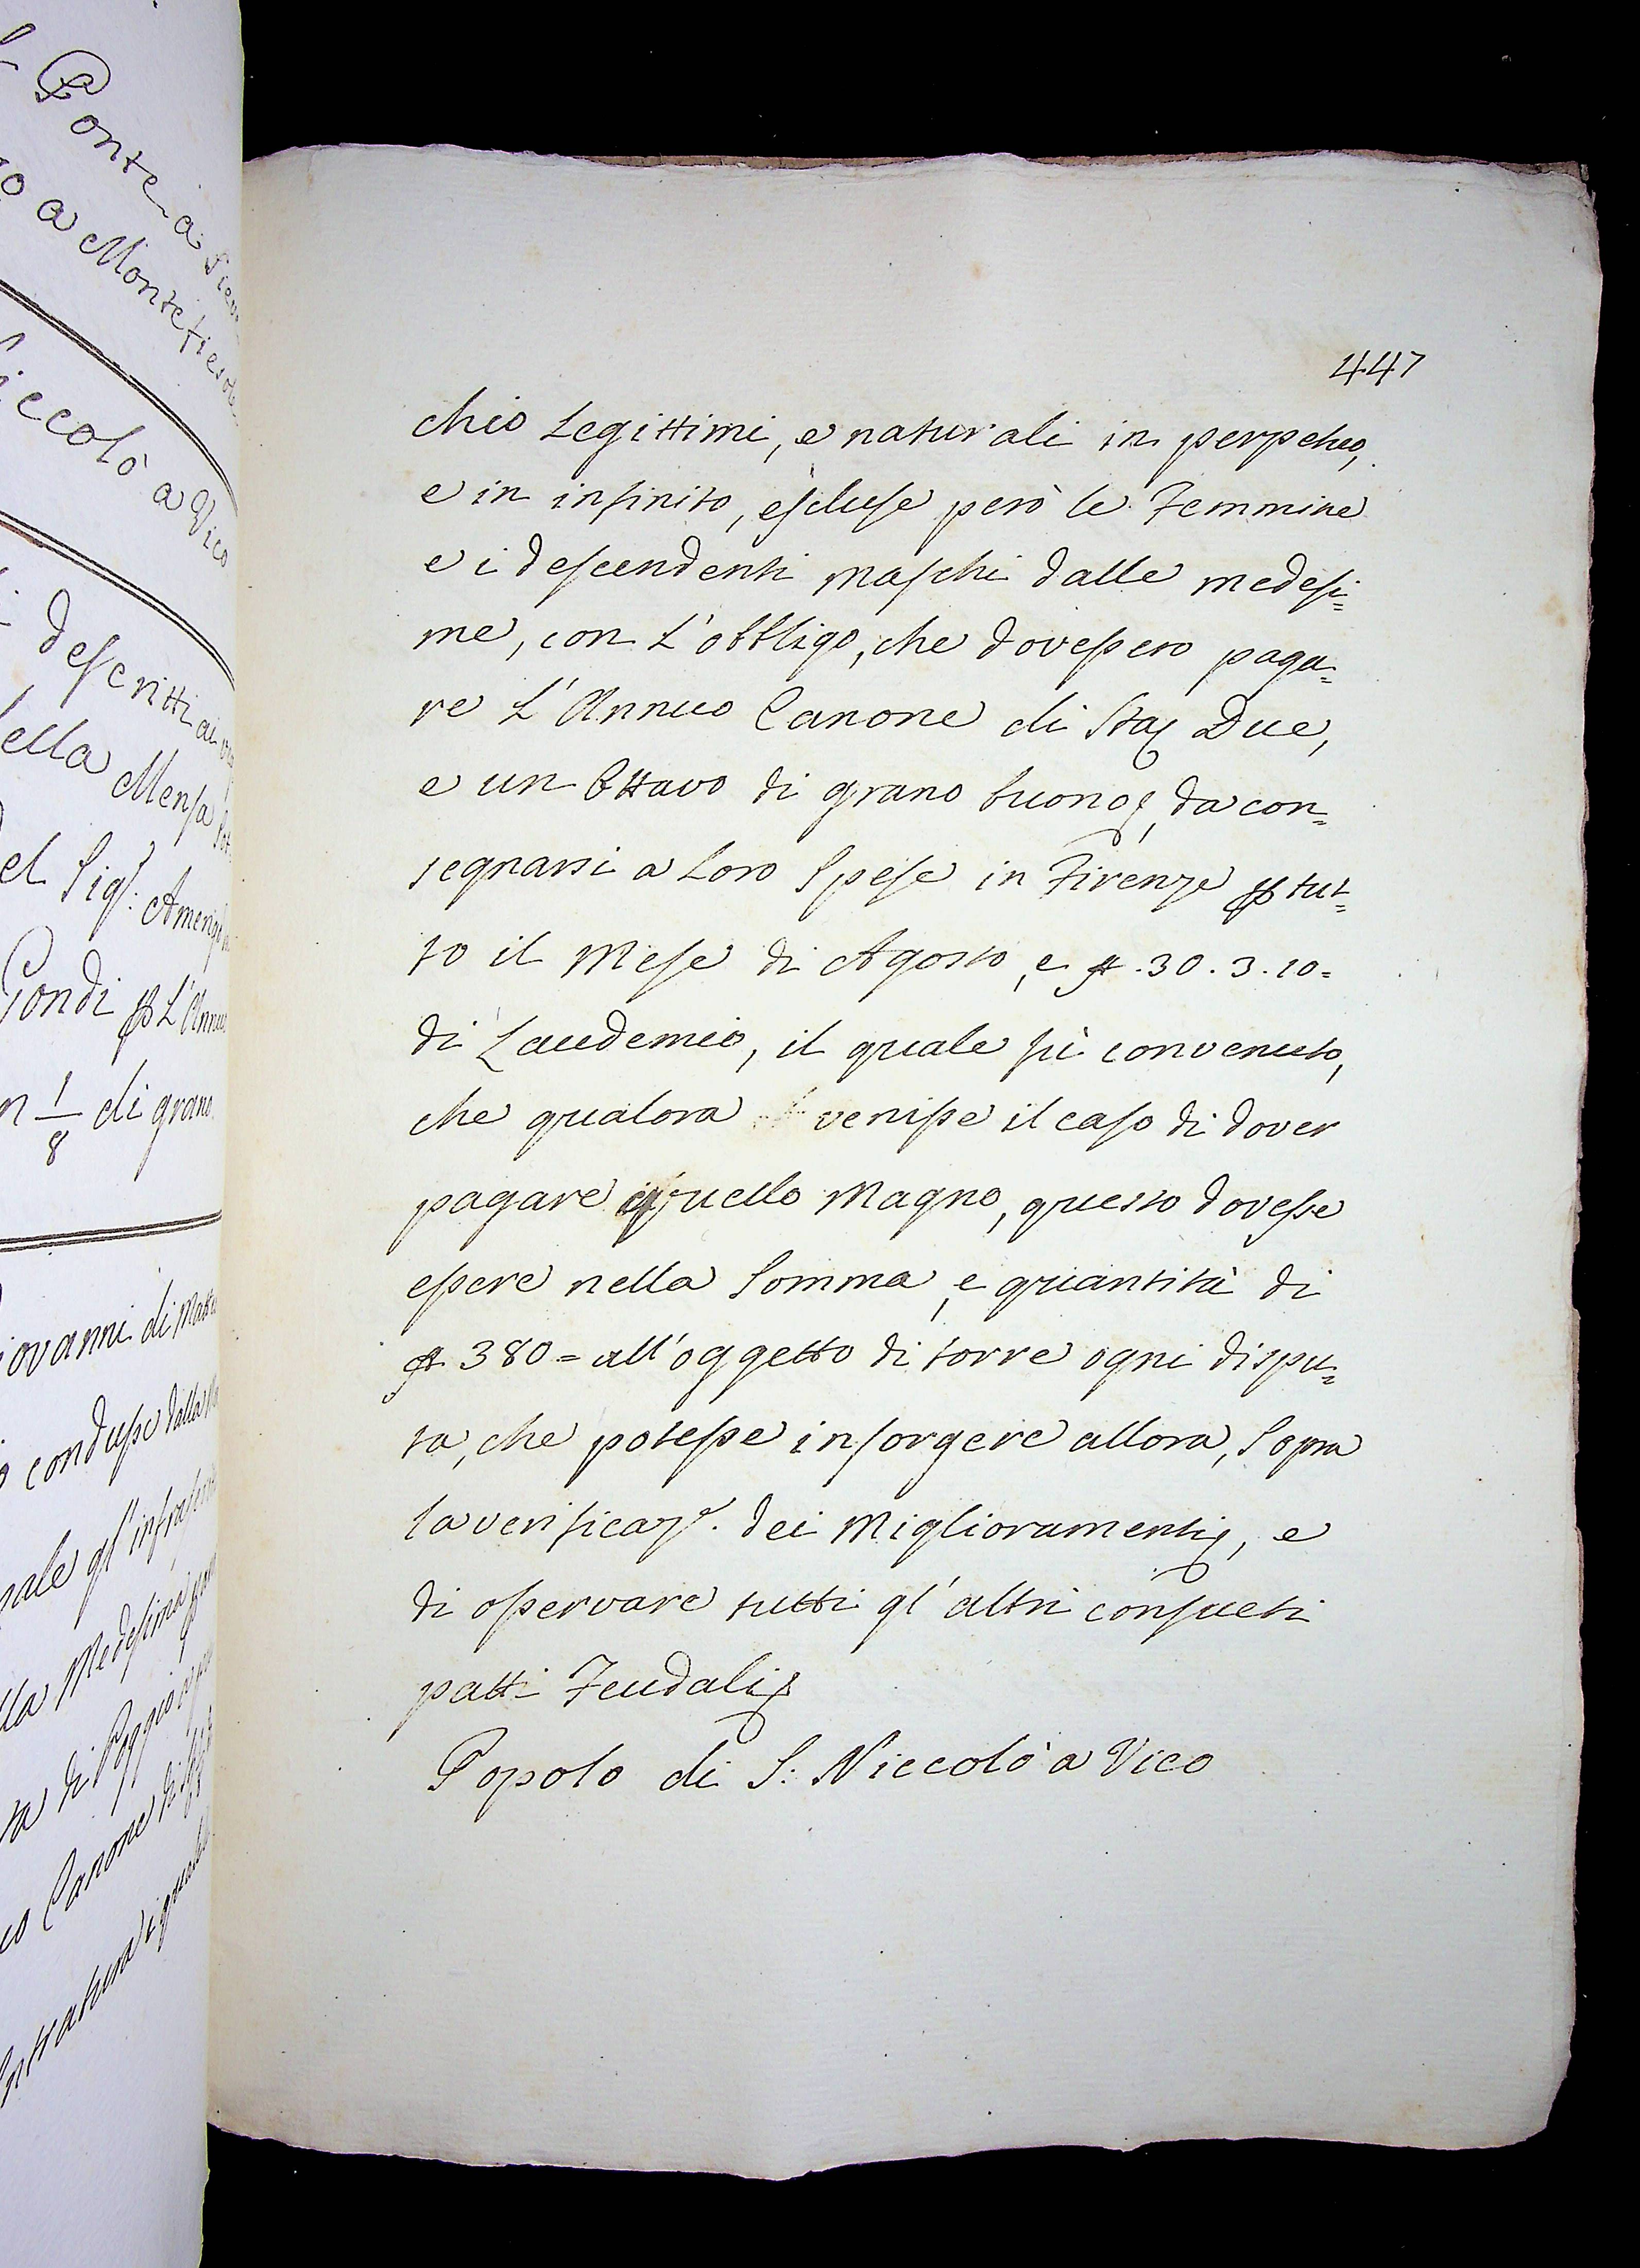 Ponte a Siev
o a Montefiesole
iccolò a Vico
descritti ai
ella Mensa
el Sig.: Amerigo
Gondi p L'Annuo
n 1/8 di grano
iovanni di Matte
condusse dalla
uale gl'infrascri
lla Medesima
ta di Poggio
o Canone di
ntratura
447
chio Legittimi, e naturali in perpetuo,
e in infinito, escluse però le Femmine
e i descendenti maschi dalle medesi=
me, con L'obbligo, che dovessero paga=
re L'Annuo Canone di Sta Due,
e un Ottavo di grano buono, da con=
segnarsi a Loro Spese in Firenze p tut=
to il Mese di Agosto, e £.30.3.10=
di Laudemio, il quale fù convenuto,
che qualora venisse il caso di dover
pagare quello Magno, questo dovesse
essere nella Somma, e quantità di
£ 380= all'oggetto di torre ogni dispu=
ta, che potesse insorgere allora, Sopra
la verificaz.e dei Miglioramenti, e
di osservare tutti gl'altri consueti
patti Feudali
Popolo di S: Niccolò a Vico